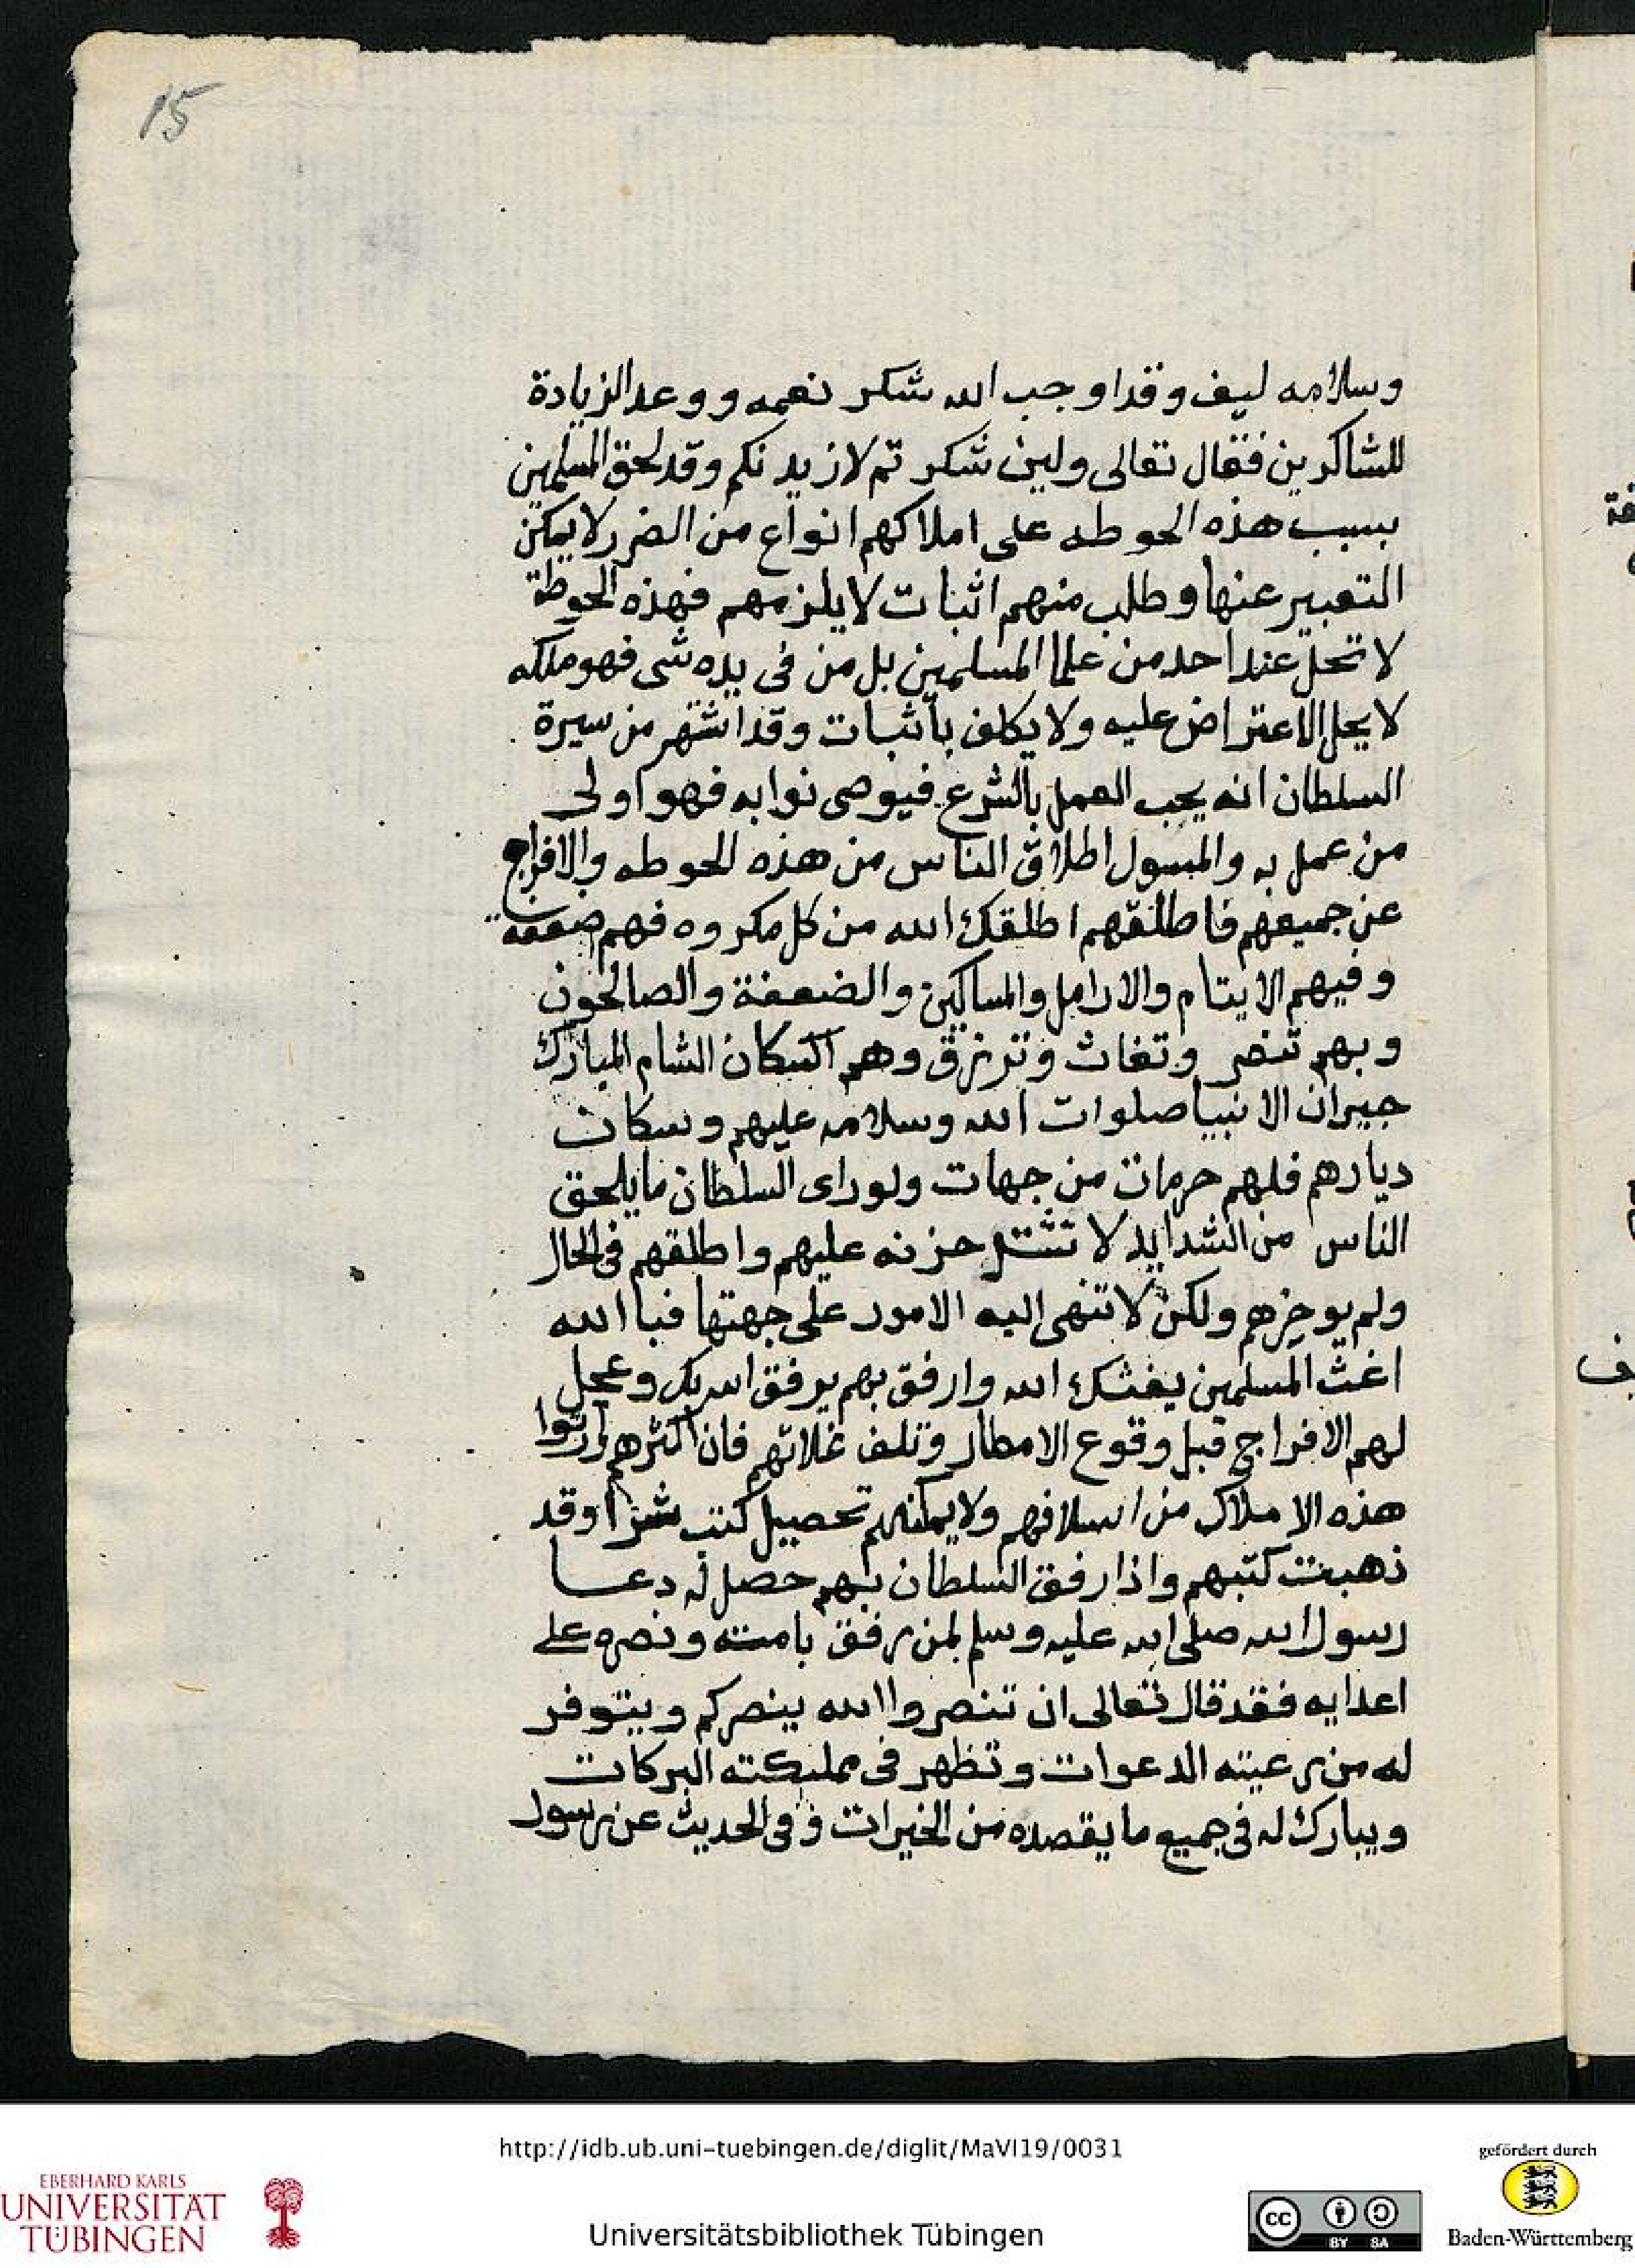 15
وسلامه ليف وقد اوجب الله شكر نعمه ووعد الزيادة
للشاكرين فقال تعالى ولين شكرتم لازيدنكم وقد لحق المسلمين
بسبب هذه الحوطه على املاكهم انواع من الضرر لا يمكن
التعبير عنها وطلب منهم اثبات لا يلزمهم فهذه الحوطة
لا تحل عند احد من علما المسلمين بل من فى يده شى فهو ملكه
لا يحل الاعتراض عليه ولا يكلف باثبات وقد اشتهر من سيرة
السلطان انه يحب العمل بالشرع فيوصى نوابه فهو اولى
من عمل به والمسول اطلاق الناس من هذه الحوطه والافراج
عن جميعهم فاطلقهم اطلقك الله من كل مكروه فهم ضعفه
وفيهم الايتام والارامل والمساكين والضعفة والصالحون
وبهم تنصر وتغاث وترزق وهم السكان الشام المبارك
جيران الانبيا صلوات الله وسلامه عليهم وسكان
ديارهم فلهم حرمات من جهات ولو راى السلطان ما يلحق
الناس من الشدايد لا حزنه عليهم واطلقهم فى الحال
ولم يوخرهم ولكن لا تنهى اليه الامور على جهتها فبا الله
اغث المسلمين يغثك الله وارفق بهم يرفق الله بك وعجل
لهم الافراج قبل وقوع الامطار وتلف غلاتهم فان اكثرهم ورثوا
هذه الاملاك من اسلافهم ولا يمكنهم تحصيل كتب شرا وقد
ذهبت كتبهم واذا رفق السلطان بهم حصل له دعا
رسول الله صلى الله عليه وسلم لمن رفق بامته ونصره على
اعدايه فقد قال تعالى ان تنصروا الله ينصركم ويتوفر
له من رعيته الدعوات وتظهر فى مملكته البركات
ويبارك له فى جميع ما يقصده من الخيرات وفى الحديث عن رسول
http://idb.ub.uni-tuebingen.de/diglit/MaVI19/0031
Universitätsbibliothek Tübingen
EBERHARD KARLS
UNIVERSITÄT
TÜBINGEN
cc BY SA
gefördert durch
Baden-Württemberg